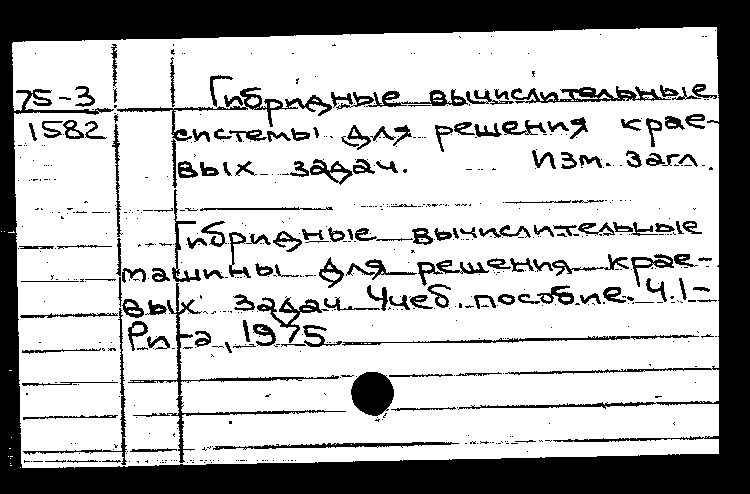 75-3 Гибридные вычислительные
1582 системы для решения крае-
вых задач. Изм. загл.
Гибридные вычислительные
машины для решения крае-
вых задач. Учеб. пособие. Ч.1-
Рига, 1975.